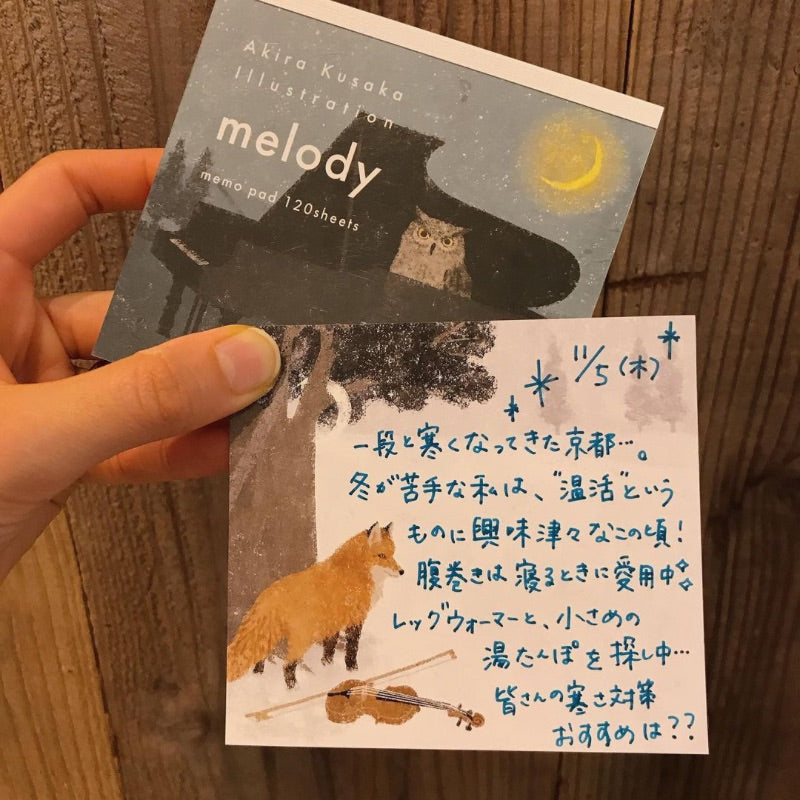 Akira Kusaka
Illustration
melody
memo pad 120sheets
11/5(木)
一段と寒くなってきた京都…。
冬が苦手な私は、"温活"という
ものに興味津々なこの頃!
腹巻きは寝るときに愛用中
レッグウォーマーと、小さめの
湯たんぽを探し中…
皆さんの寒さ対策
おすすめは??